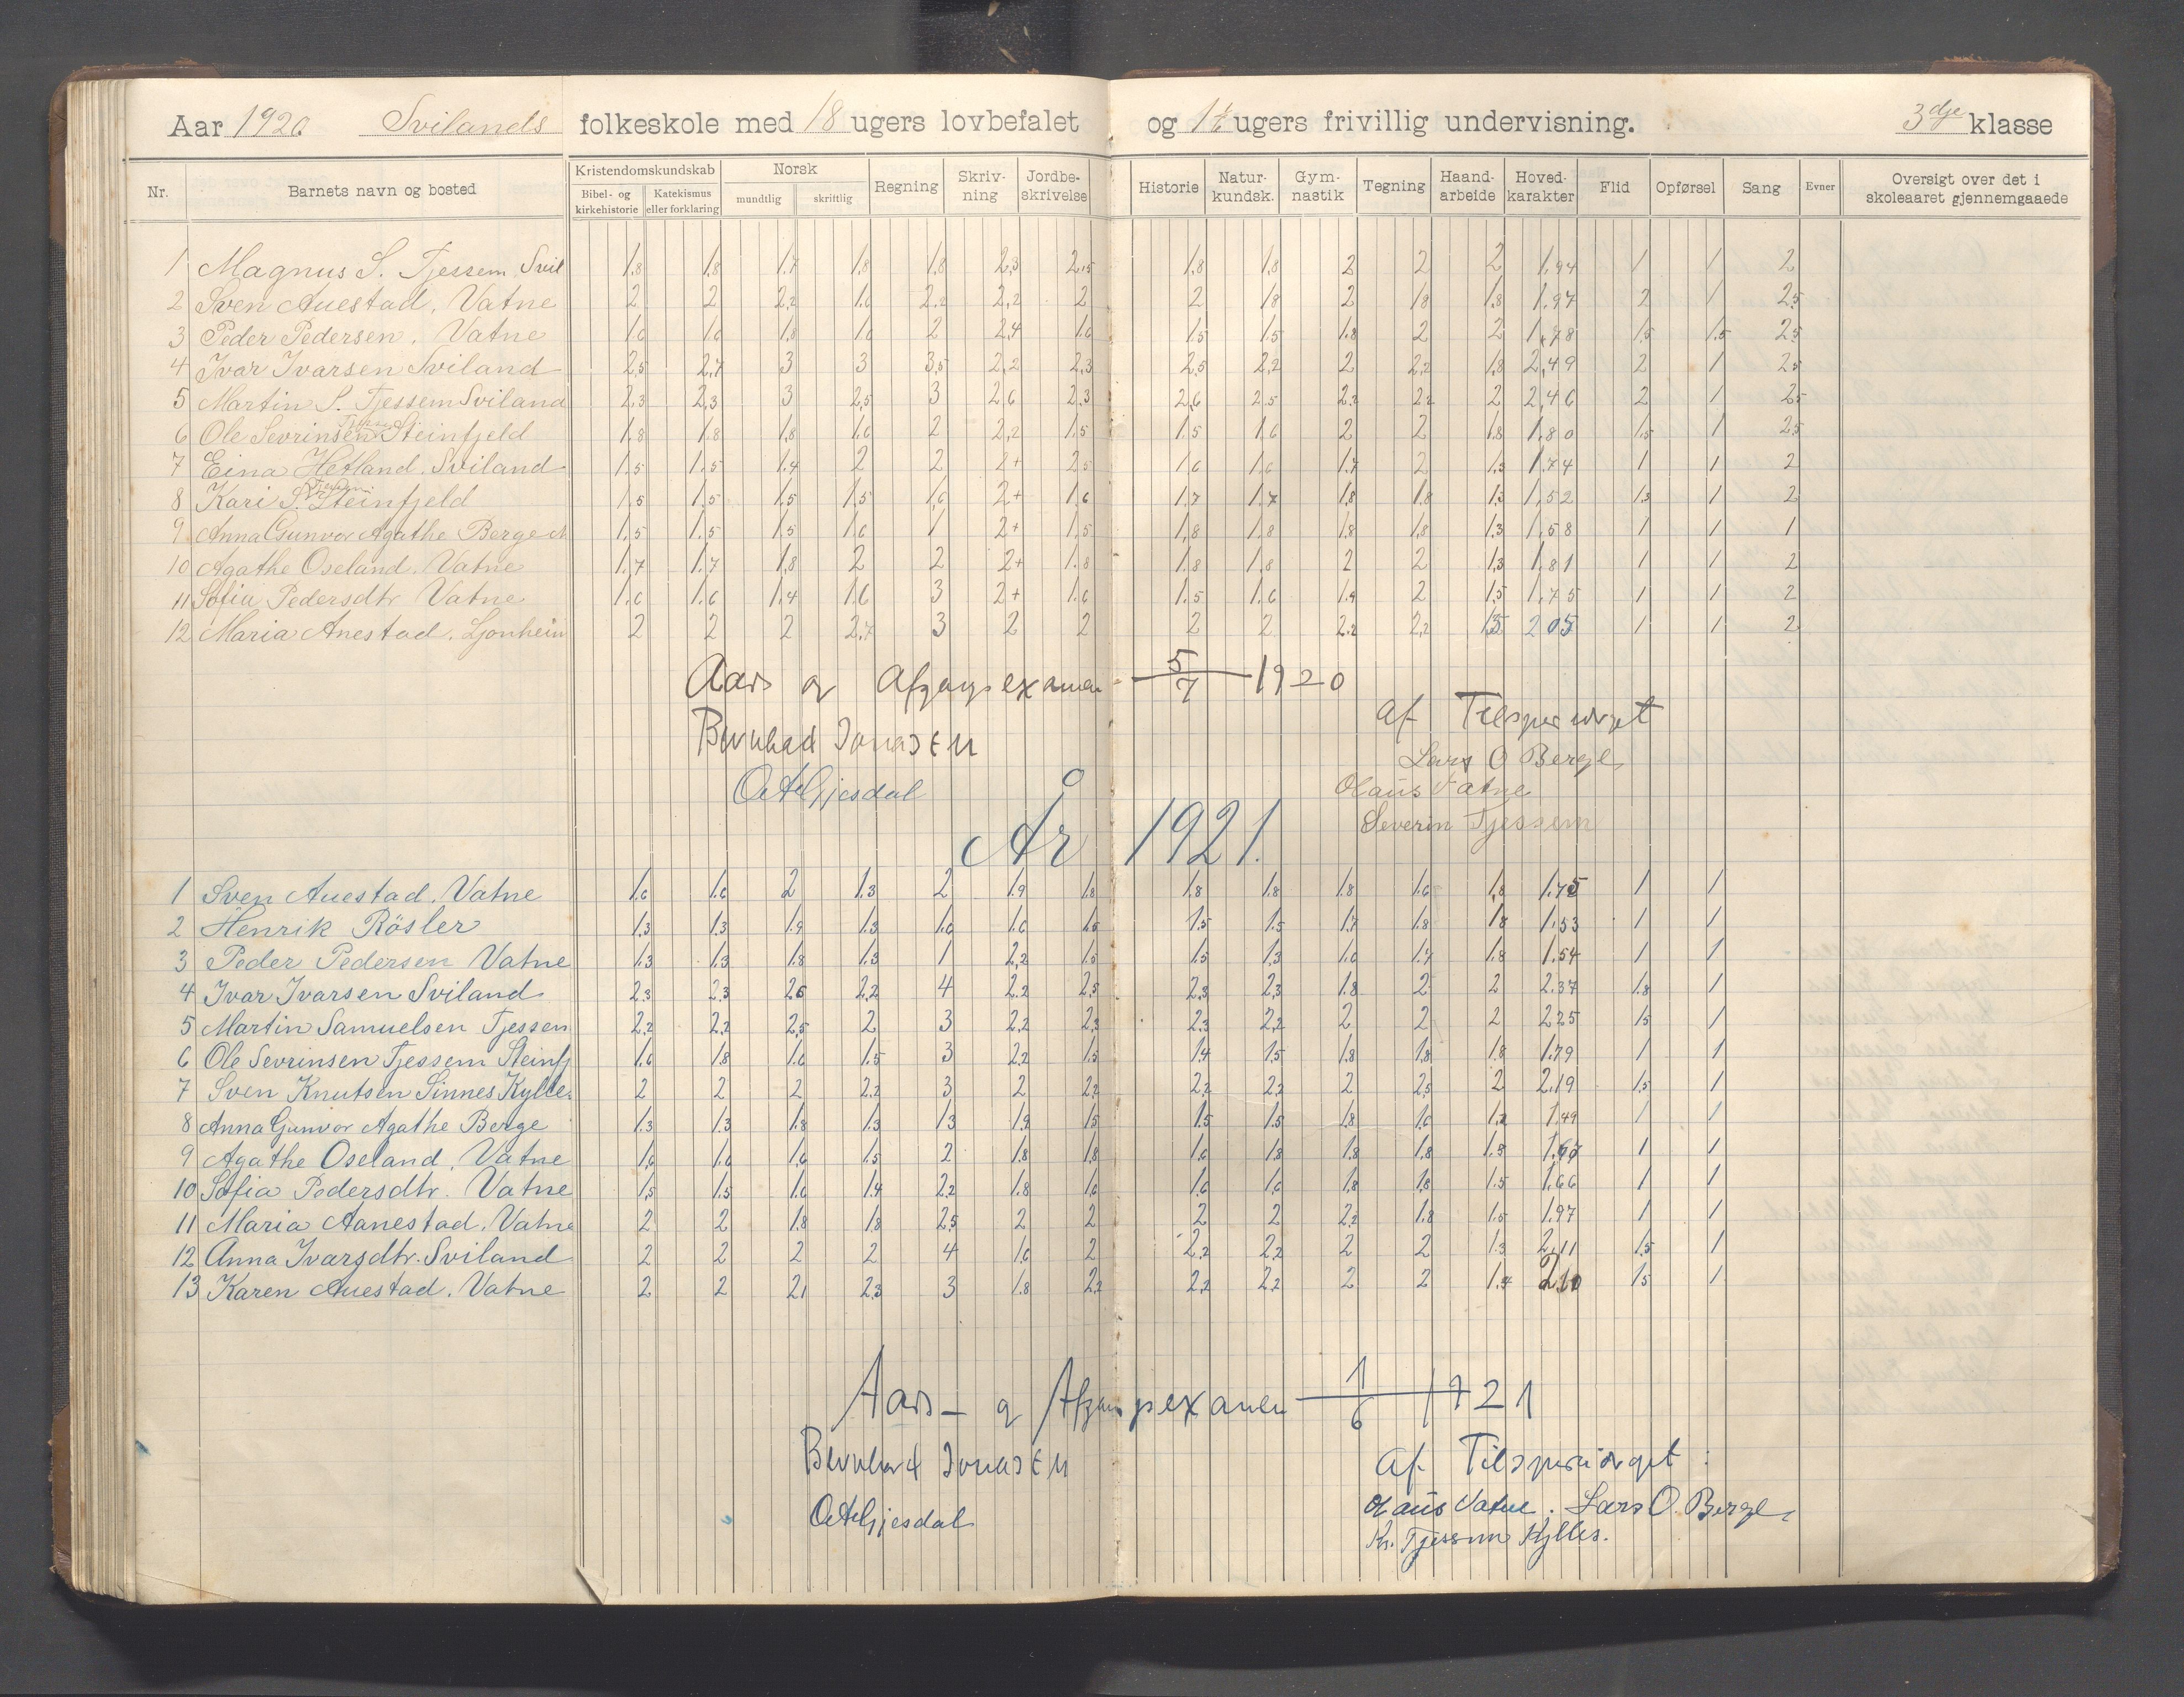 Aar 1920 Svilands folkeskole med 18 ugers lovbefalet og ugers frivillig undervisning. 3dje klasse
Nr. Barnets navn og bosted Kristendomskundskab Norsk Regning Skriv-ning Jordbe-skrivelse Historie Natur-kundsk. Gym-nastik Tegning Haand-arbeide Hoved-karakter Flid Opførsel Sang Evner Oversigt over det i skoleaaret gjennemgaaede
Bibel- og kirkehistorie Katekismus eller forklaring mundtlig skriftlig
1 Magnus S. Tjessem Svil 1,8 1,8 1,7 1,8 1,8 2,3 2,5 1,8 1,8 2 2 2 1,94 1 1 2
2 Sven Auestad. Vatne 2 2 2,2 1,6 2,2 2,2 2 2 1,8 2 1,8 1,8 1,97 2 1 2,5
3 Peder Pedersen. Vatne 1,6 1,6 1,8 1,6 2 2,4 1,6 1,5 1,5 1,8 2 2 1,78 1,5 1,5 2,5
4 Ivar Ivarsen Sviland 2,5 2,7 3 3 3,5 2,2 2,3 2,5 2,2 2 2,2 1,8 2,49 2 1 2,5
5 Martin S. Tjessem Sviland 2,3 2,3 3 2,5 3 2,6 2,3 2,6 2,5 2,2 2,2 2 2,46 2 1 2,5
6 Ole Sevrinsen Tjessem Steinfjeld 1,8 1,8 1,8 1,6 2 2,2 1,5 1,5 1,6 2 2 1,8 1,80 1,5 1 2,5
7 Eina Hetland. Sviland 1,5 1,5 1,4 2 2 2+ 2,5 1,6 1,6 1,7 2 1,3 1,74 1 1 2
8 Kari S. Tjessem Steinfjeld 1,5 1,5 1,5 1,5 1,6 2+ 1,6 1,7 1,7 1,8 1,8 1,3 1,52 1,3 1 2
9 Anna Gunvor Agathe Berge 1,5 1,5 1,5 1,6 1 2+ 1,5 1,8 1,8 1,8 1,8 1,3 1,58 1 1 1
10 Agathe Oseland. Vatne 1,7 1,7 1,8 2 2 2+ 1,8 1,8 1,8 2 2 1,3 1,81 1 1 2
11 Sofia Pedersdtr Vatne 1,6 1,6 1,4 1,6 3 2+ 1,6 1,5 1,6 1,9 2 1,5 1,75 1 1 2
12 Maria Anestad. Ljonheim 2 2 2 2,7 3 2 2 2 2 2,2 2,2 1,5 2,05 1 1 2
Aars og Afgangsexamen 5/7 1920
af Tilsynsutvget
Bernhard Jonassen
Lars O Berge
O A Gjesdal
Olaus Vatne
Severin Tjessem
År 1921.
1 Sven Auestad. Vatne 1,6 1,6 2 1,3 2 1,9 1,8 1,8 1,8 1,8 1,6 1,8 1,75 1 1
2 Henrik Rösler 1,3 1,3 1,9 1,3 1,6 1,6 1,5 1,5 1,5 1,7 1,8 1,8 1,53 1 1
3 Peder Pedersen Vatne 1,3 1,3 1,8 1,3 1 2,2 1,5 1,5 1,3 1,6 1,7 1,8 1,54 1 1
4 Ivar Ivarsen Sviland 2,3 2,3 2,6 2,2 4 2,2 2,5 2,3 2,3 1,8 2 2 2,37 1,8 1
5 Martin Samuelsen Tjessem 2,2 2,2 2,5 2 3 2,2 2,3 2,3 2,2 2 2 2 2,25 1,5 1
6 Ole Sevrinsen Tjessem Steinfj 1,6 1,8 1,6 1,5 3 2,2 1,5 1,4 1,5 1,8 1,8 1,8 1,79 1 1
7 Sven Knutsen Sinnes Kylles 2 2 2 2,2 3 2 2,2 2,2 2,2 2 2,5 2 2,19 1,5 1
8 Anna Gunvor Agathe Berge 1,3 1,3 1,8 1,3 1,3 1,9 1,5 1,5 1,5 1,8 1,6 1,2 1,49 1 1
9 Agathe Oseland, Vatne 1,6 1,6 1,6 1,5 2 1,8 1,8 1,6 1,8 1,8 1,8 1,3 1,67 1 1
10 Sofia Pedersdtr. Vatne 1,5 1,5 1,6 1,4 2,2 1,8 1,6 1,6 1,6 1,8 1,8 1,5 1,66 1 1
11 Maria Aanestad. Vatne 2 2 1,8 1,8 2,5 2 2 2 2 2,2 1,8 1,5 1,97 1 1
12 Anna Ivarsdtr. Sviland 2 2 2 2 4 1,6 2 2,2 2,2 2 2 1,3 2,11 1,5 1
13 Karen Auestad. Vatne 2 2 2,1 2,3 3 1,8 2,2 2,2 2,2 2 2 1,4 2,10 1,5 1
Aars- og Afgangsexamen 1/6 1921
Bernhard Jonassen
af Tilsynsutvget:
O A Gjesdal
Olaus Vatne. Lars O. Berge
Kr. Tjessem Kylles.